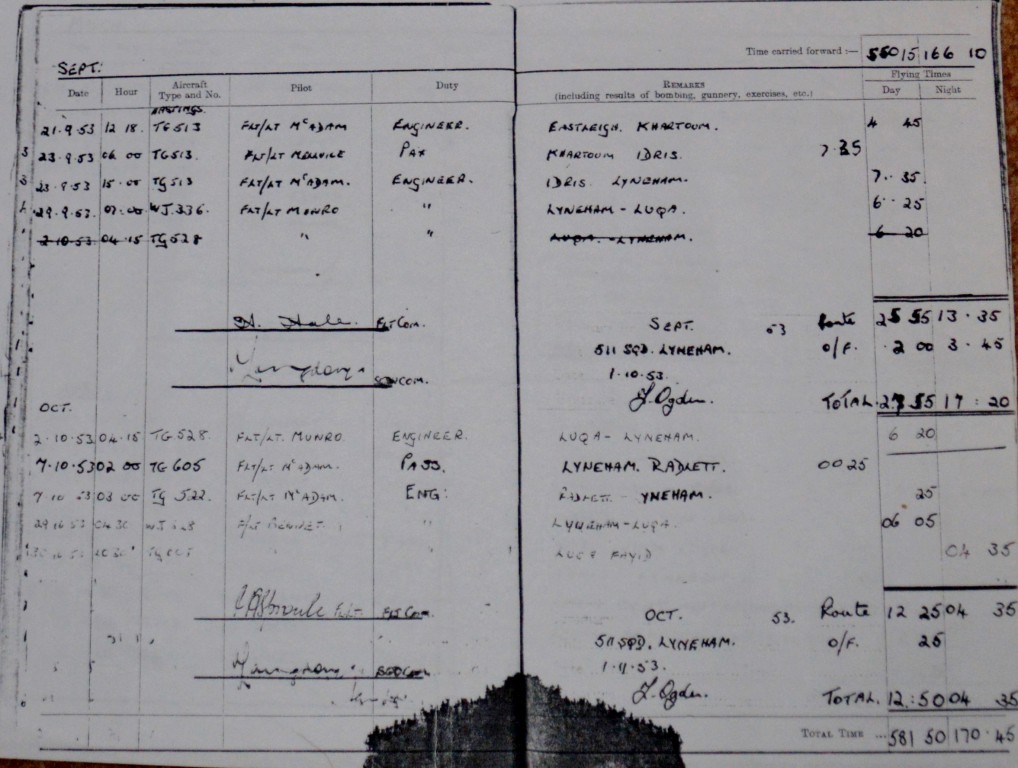 Time carried forward :— 560 15 166 10
SEPT:
Date Hour Aircraft Type and No. Pilot Duty REMARKS (including results of bombing, gunnery, exercises, etc.) Flying Times Day Night
HASTINGS.
21·9·53 12 18. TG513 FLT/LT McADAM ENGINEER. EASTLEIGH. KHARTOUM. 4 45
23·9·53 06 00 TG513. FLT/LT MELLVILLE PAX KHARTOUM IDRIS. 7·35
23·9·53 15·00 TG513 FLT/LT McADAM. ENGINEER. IDRIS LYNEHAM. 7·35
29·9·53. 07:00 WJ.336. FLT/LT MUNRO " LYNEHAM - LUQA. 6 25
2·10·53 04·15 TG528 " " LUQA - LYNEHAM. 6 20
A. Hale. FLT COM. SEPT. 53 Route 25 55 13·35
511 SQD. LYNEHAM. O/F. 2 00 3·45
SQN COM. 1·10·53.
OCT. Ogden. TOTAL. 27 55 17:20
2·10·53 04·15 TG528. FLT/LT. MUNRO ENGINEER. LUQA - LYNEHAM. 6 20
7·10·53 02 00 TG605 FLT/LT McADAM. PASS. LYNEHAM. RADLETT. 00 25
7 10 53 03 00 TG 522. FLT/LT McADAM. ENG: RADLETT - YNEHAM. 25
04 30 " LYNEHAM - LUQA. 06 05
" " LUQA FAYID 04 35
FLT COM. OCT. 53. Route 12 25 04 35
511 SQD. LYNEHAM. O/F. 25
1·11·53.
Ogden. TOTAL. 12:50 04 35
TOTAL TIME ... 581 50 170·45